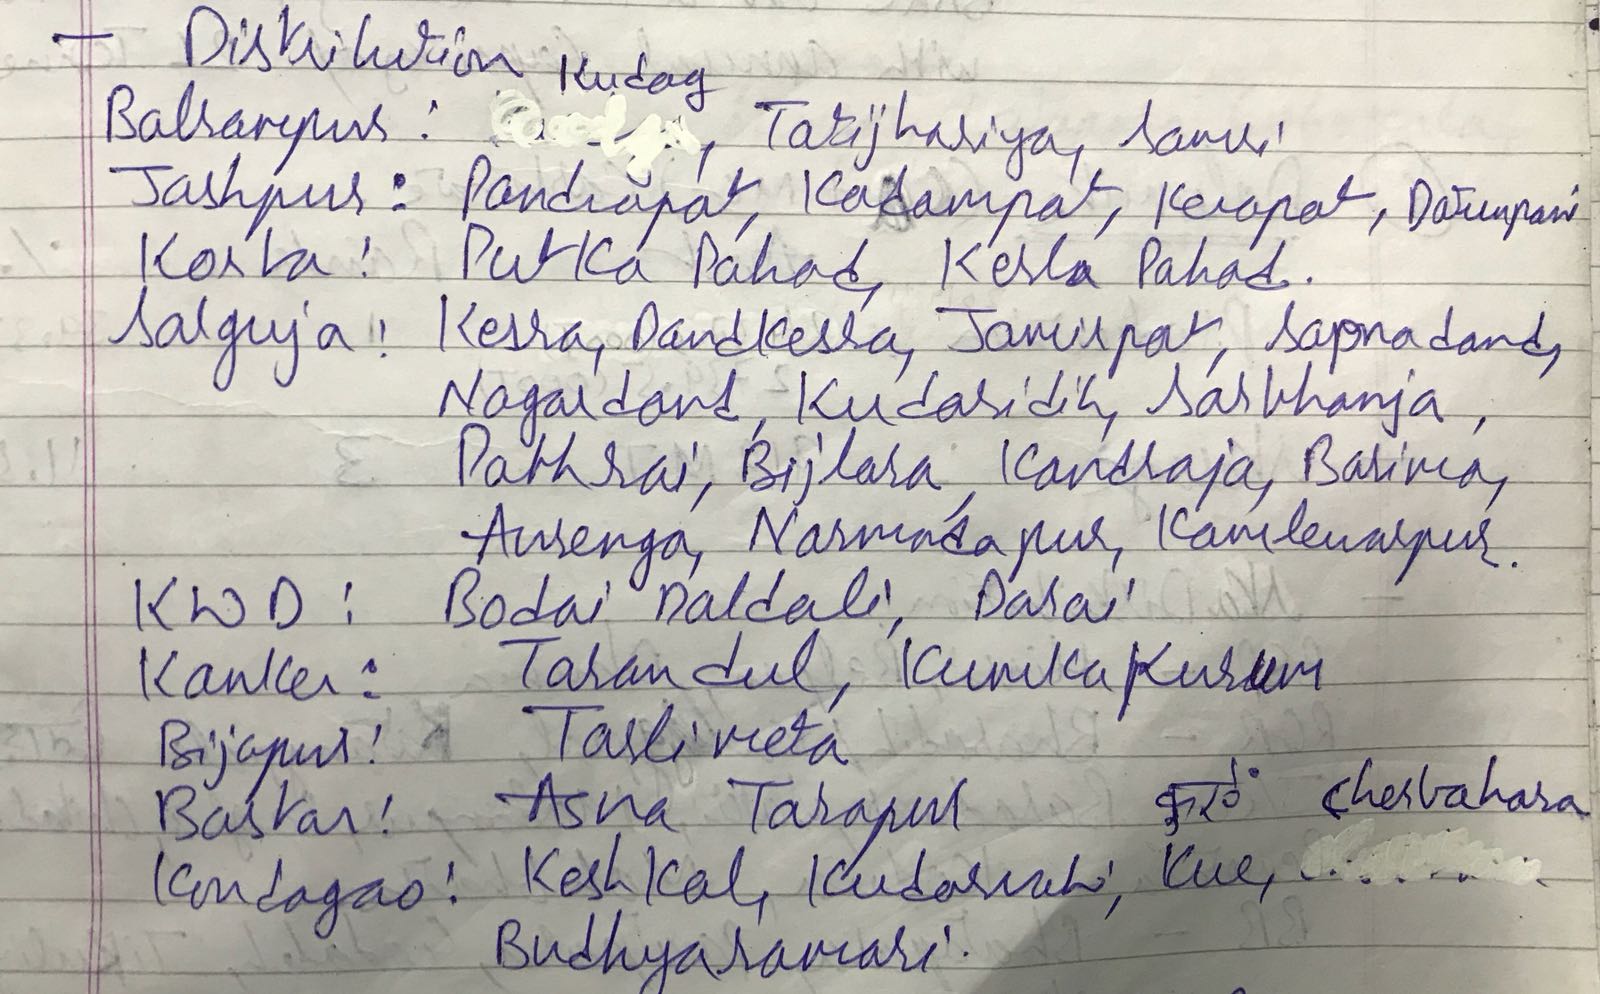 — Distribution
Kudag
Balrampur : , Tatijhariya, Samri
Jashpur : Pandrapat, Kadampat, Kerapat, Datunpani
Korba : Putka Pahad, Kesla Pahad.
Sarguja : Kesra, Dandkesra, Jamirpat, Sapnadand,
Nagardand, Kudaridih, Sarbhanja,
Pathrai, Bijlara, Kandraja, Barima,
Aurenga, Narmadapur, Kamleswarpur.
KWD : Bodai Daldali, Darai
Kanker : Tarandul, Kumkakurum
Bijapur : Tarlimeta
Bastar : Asna Tarapur Cherbahara
Kondagao : Keshkal, Kudarwahi, Kue,
Budhyaramari.